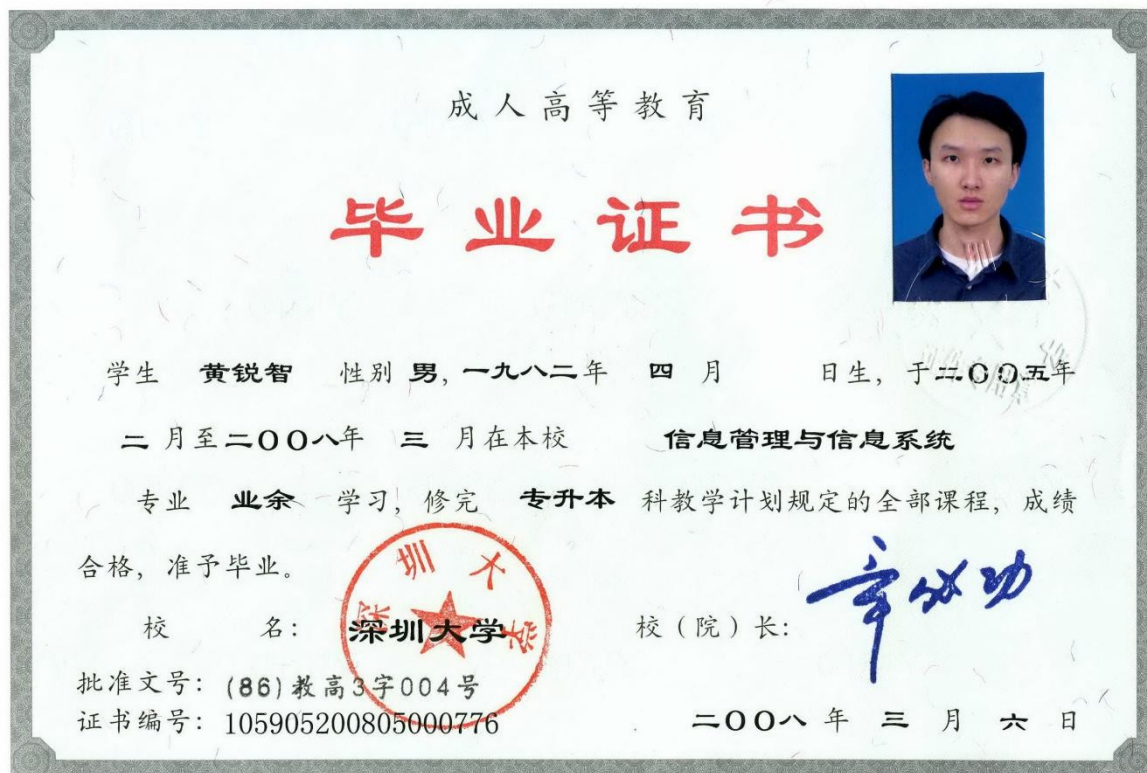 成人高等教育
毕业证书
学生 黄锐智 性别 男, 一九八二年 四 月 日生, 于二〇〇五年
二 月至二〇〇八年 三 月在本校 信息管理与信息系统
专业 业余 学习, 修完 专升本 科教学计划规定的全部课程, 成绩
合格, 准予毕业。
深圳大学
校 名: 深圳大学 校（院）长: 章必功
批准文号: (86)教高3字004号
证书编号: 105905200805000776 二〇〇八 年 三 月 六 日